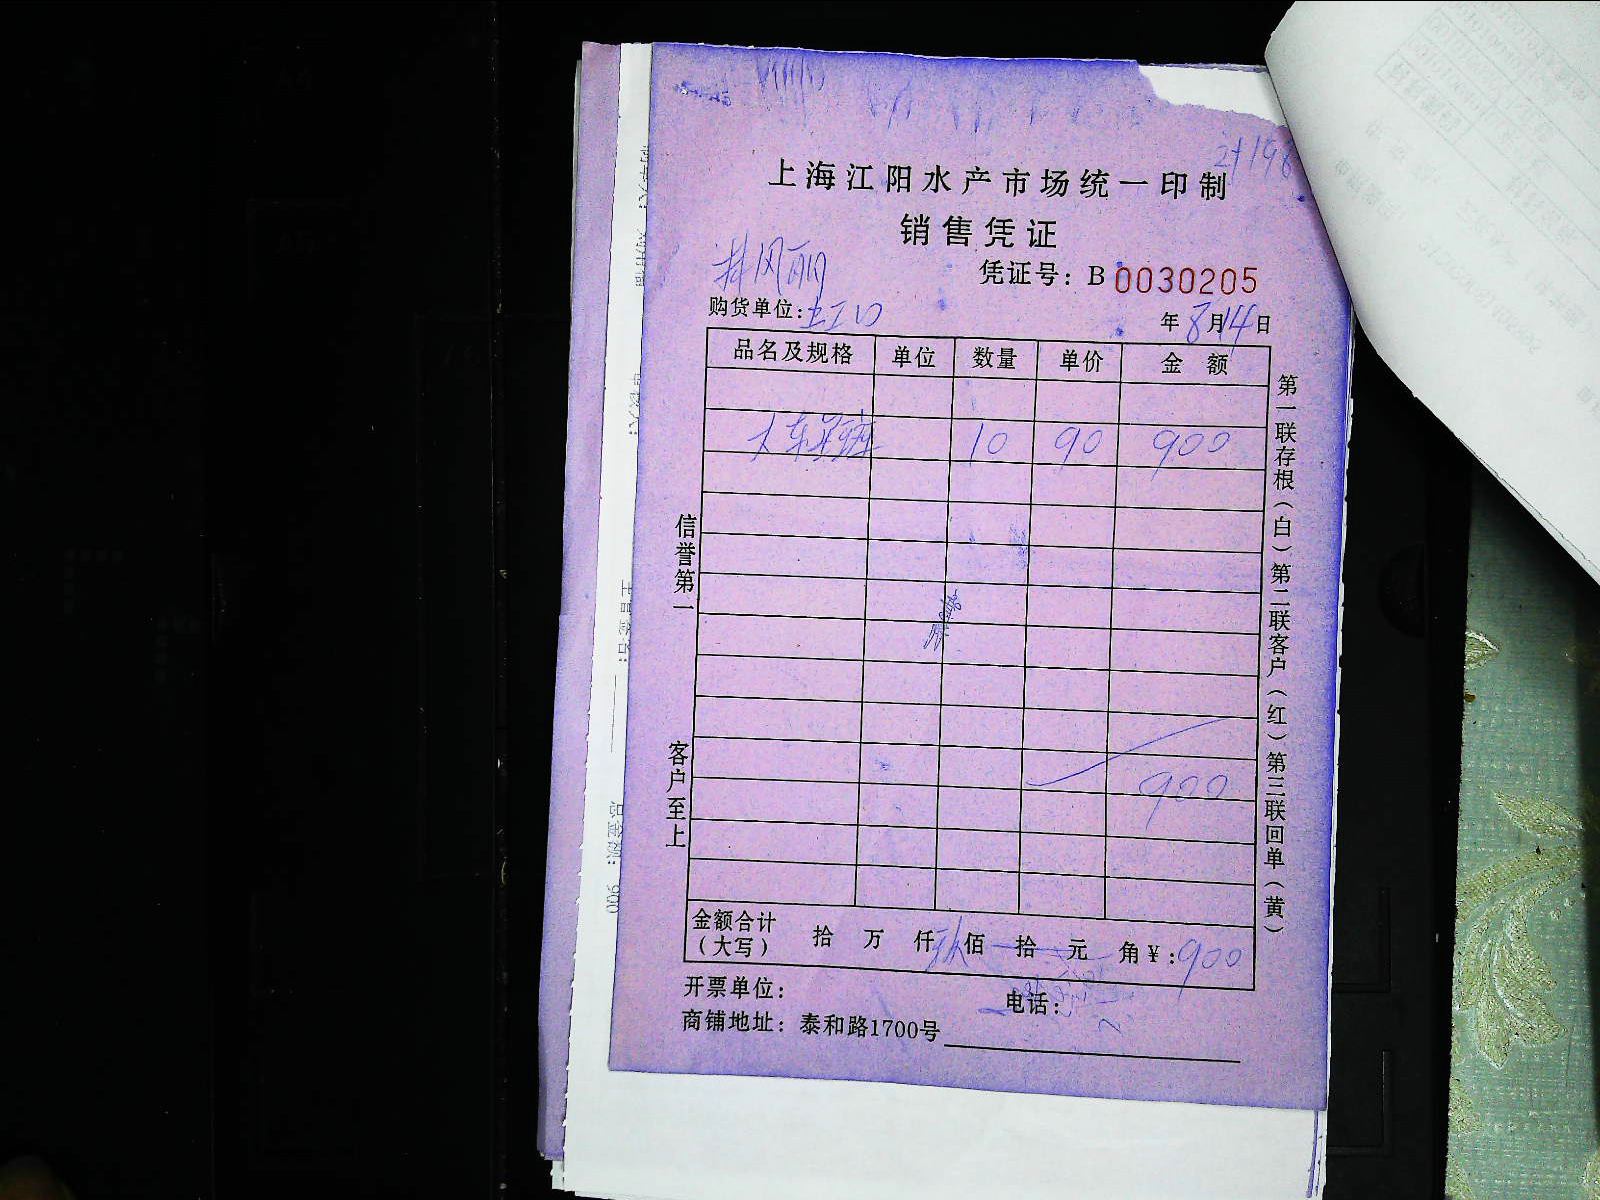 上海江阳水产市场统一印制
销售凭证
凭证号: B 0030205
购货单位: 五工口
年 8月14日
品名及规格 单位 数量 单价 金额
10 90 900
900
金额合计
(大写) 拾 万 仟 玖佰 拾 元 角 ¥: 900
开票单位: 电话:
商铺地址: 泰和路1700号
信誉第一
客户至上
第一联存根(白)第二联客户(红)第三联回单(黄)